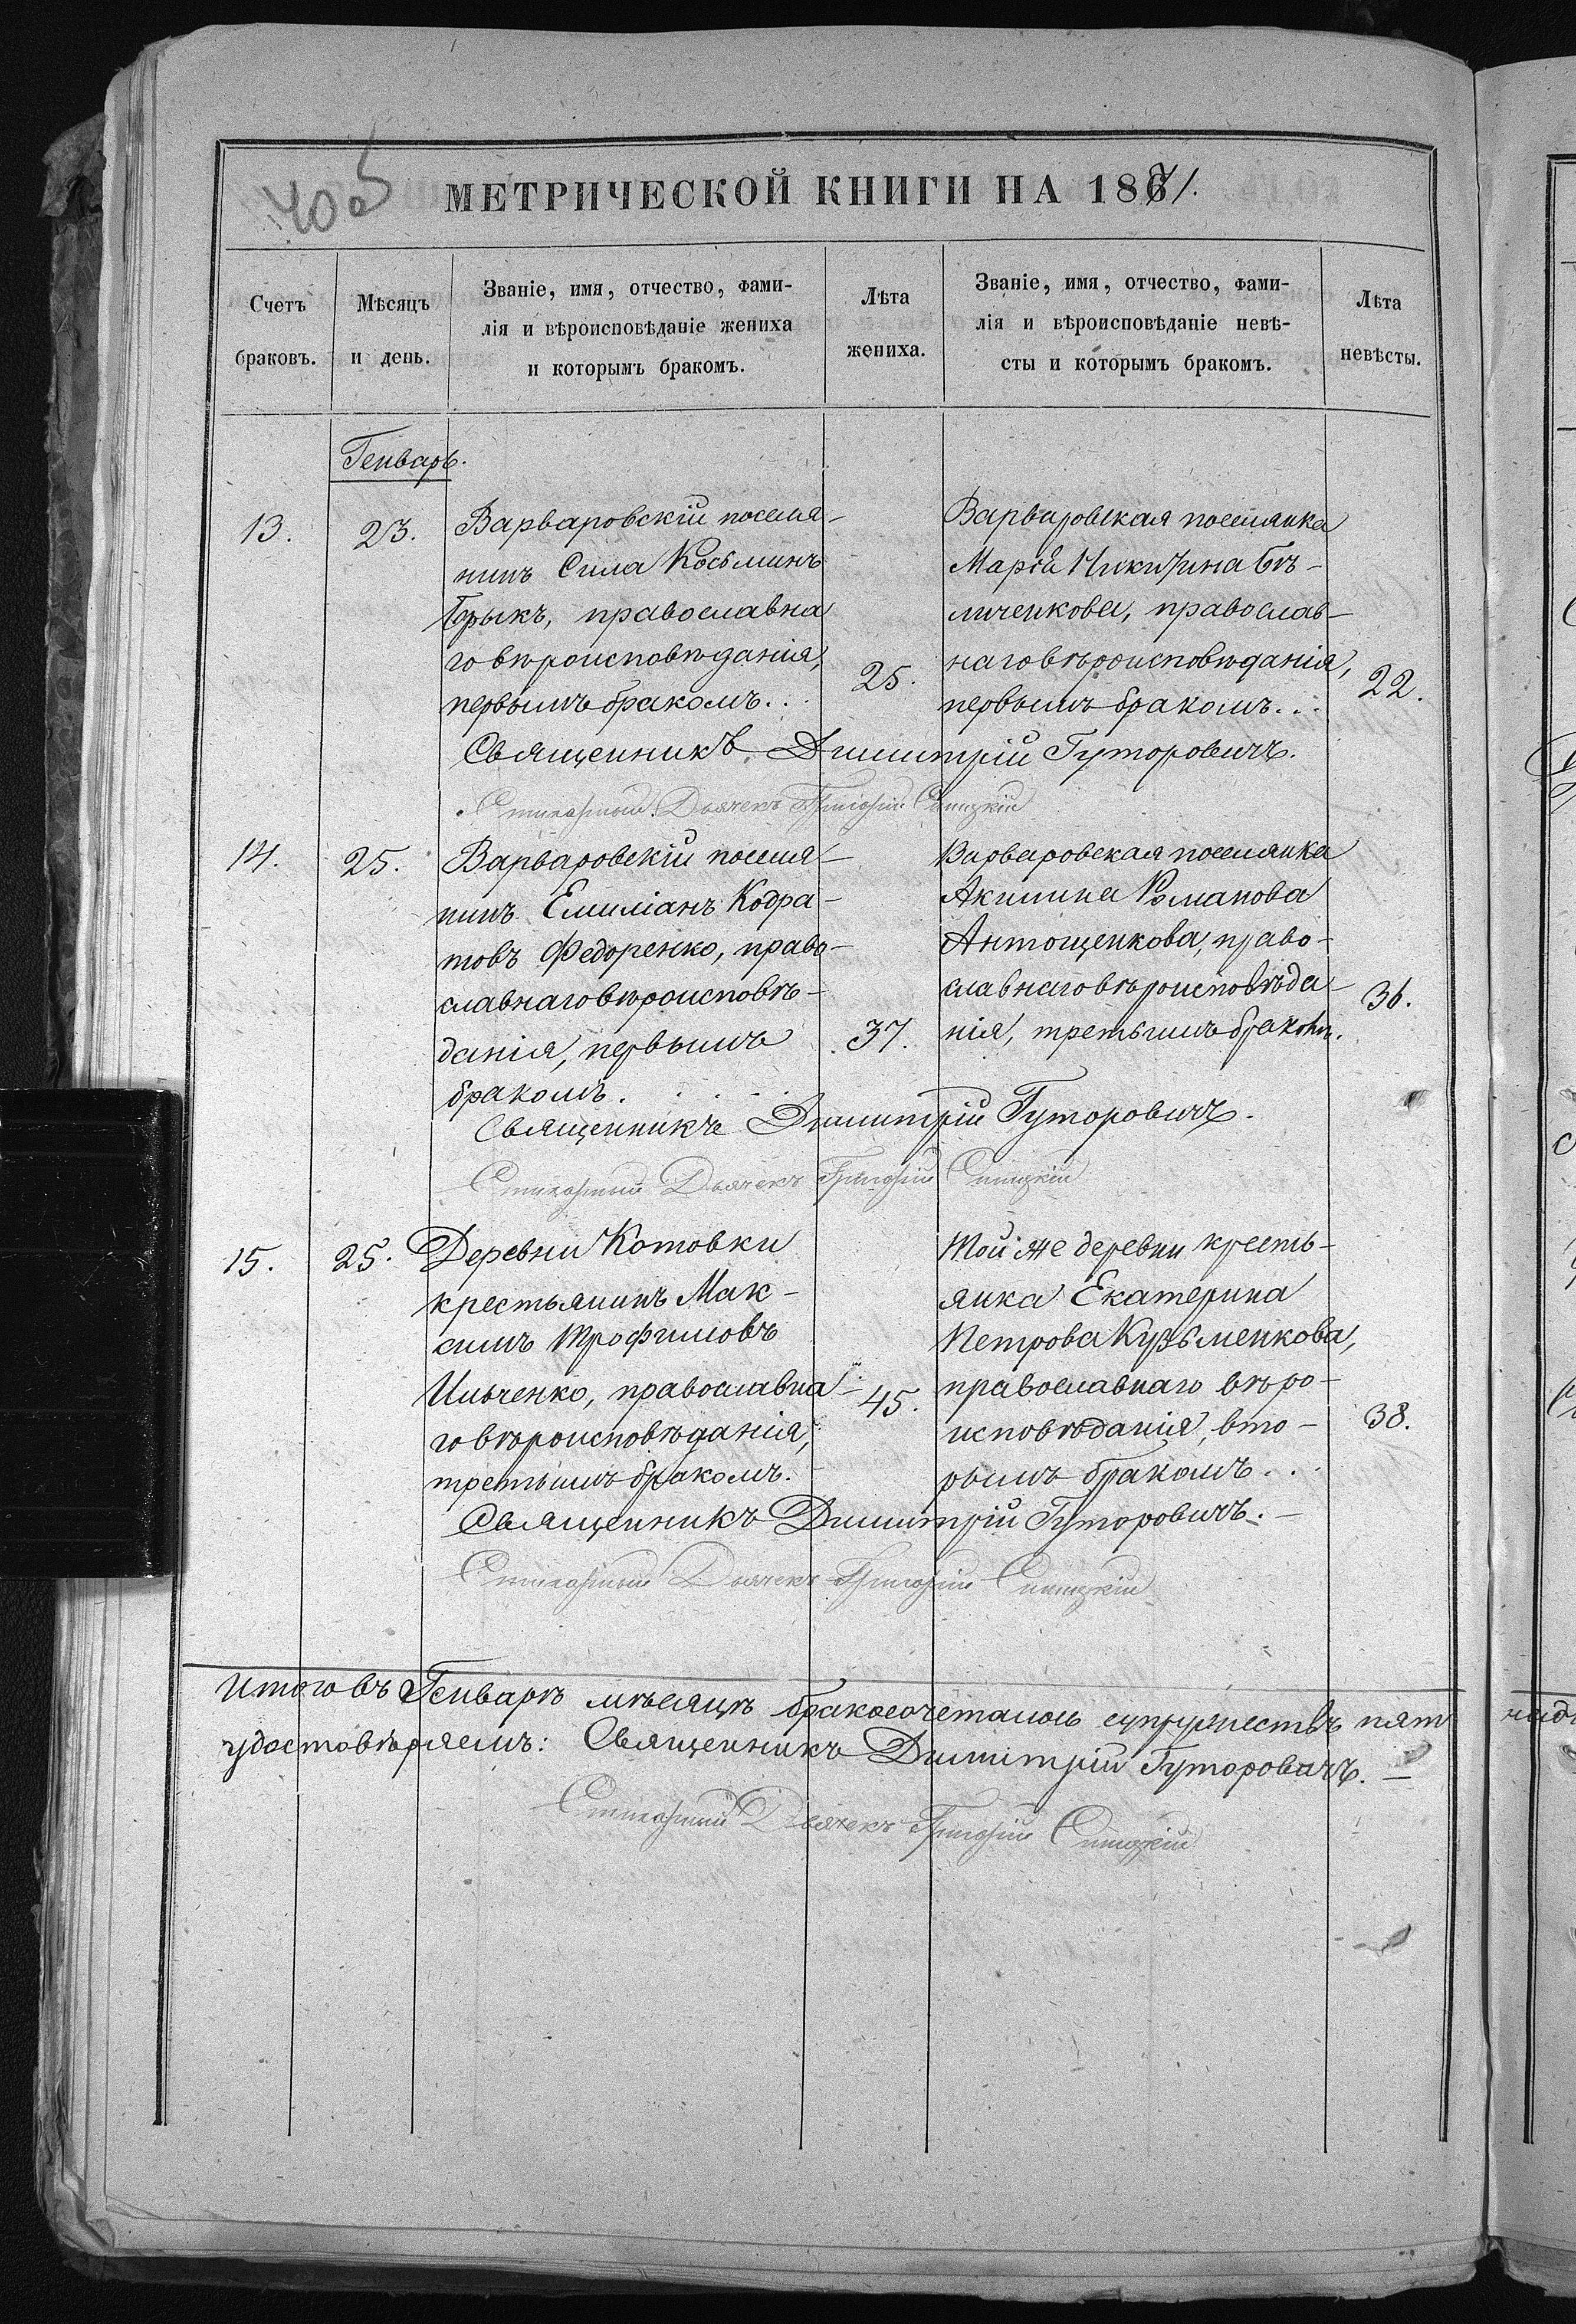 405
МЕТРИЧЕСКОЙ КНИГИ НА 1871.
Счетъ
браковъ.
Мѣсяцъ
и день.
Званіе, имя, отчество, фами-
лія и вѣроисповѣданіе жениха
и которымъ бракомъ.
Лѣта
жениха.
Званіе, имя, отчество, фами-
лія и вѣроисповѣданіе невѣ-
сты и которымъ бракомъ.
Лѣта
невѣсты.
Генварь.
13.
23.
Варваровскій поселя-
нинъ Сила Косьминъ
православна
го вѣроисповѣданія,
первымъ бракомъ...
25.
Варваровская поселянка
Марія Никитина Бѣ-
личенкова, православ-
наго вѣроисповѣданія,
первымъ бракомъ...
22.
Священникъ Димитрій Гуторовичъ.
Стихарный Дьячекъ Григорій
14.
25.
Варваровскій поселя-
нинъ Емиліанъ Кодра-
товъ Федоренко, право-
славнаго вѣроисповѣ-
данія, первымъ
бракомъ.
37.
Варваровская поселянка
Акилина Романова
Антощенкова, право-
славнаго вѣроисповѣда-
нія, третьимъ бракомъ.
36.
Священникъ Димитрій Гуторовичъ.
Стихарный Дьячекъ Григорій
15.
25.
Деревни Котовки
крестьянинъ Мак-
симъ Трофимовъ
Ильченко, православна-
го вѣроисповѣданія,
третьимъ бракомъ.
45.
Той же деревни кресть-
янка Екатерина
Петрова Кузьменкова,
православнаго вѣро-
исповѣданія, вто-
рымъ бракомъ...
38.
Священникъ Димитрій Гуторовичъ.-
Стихарный Дьячекъ Григорій
Итого въ Генварѣ мѣсяцѣ бракосочеталось супружествъ пят
удостовѣряемъ: Священникъ Димитрій Гуторовичъ. -
Стихарный Дьячекъ Григорій